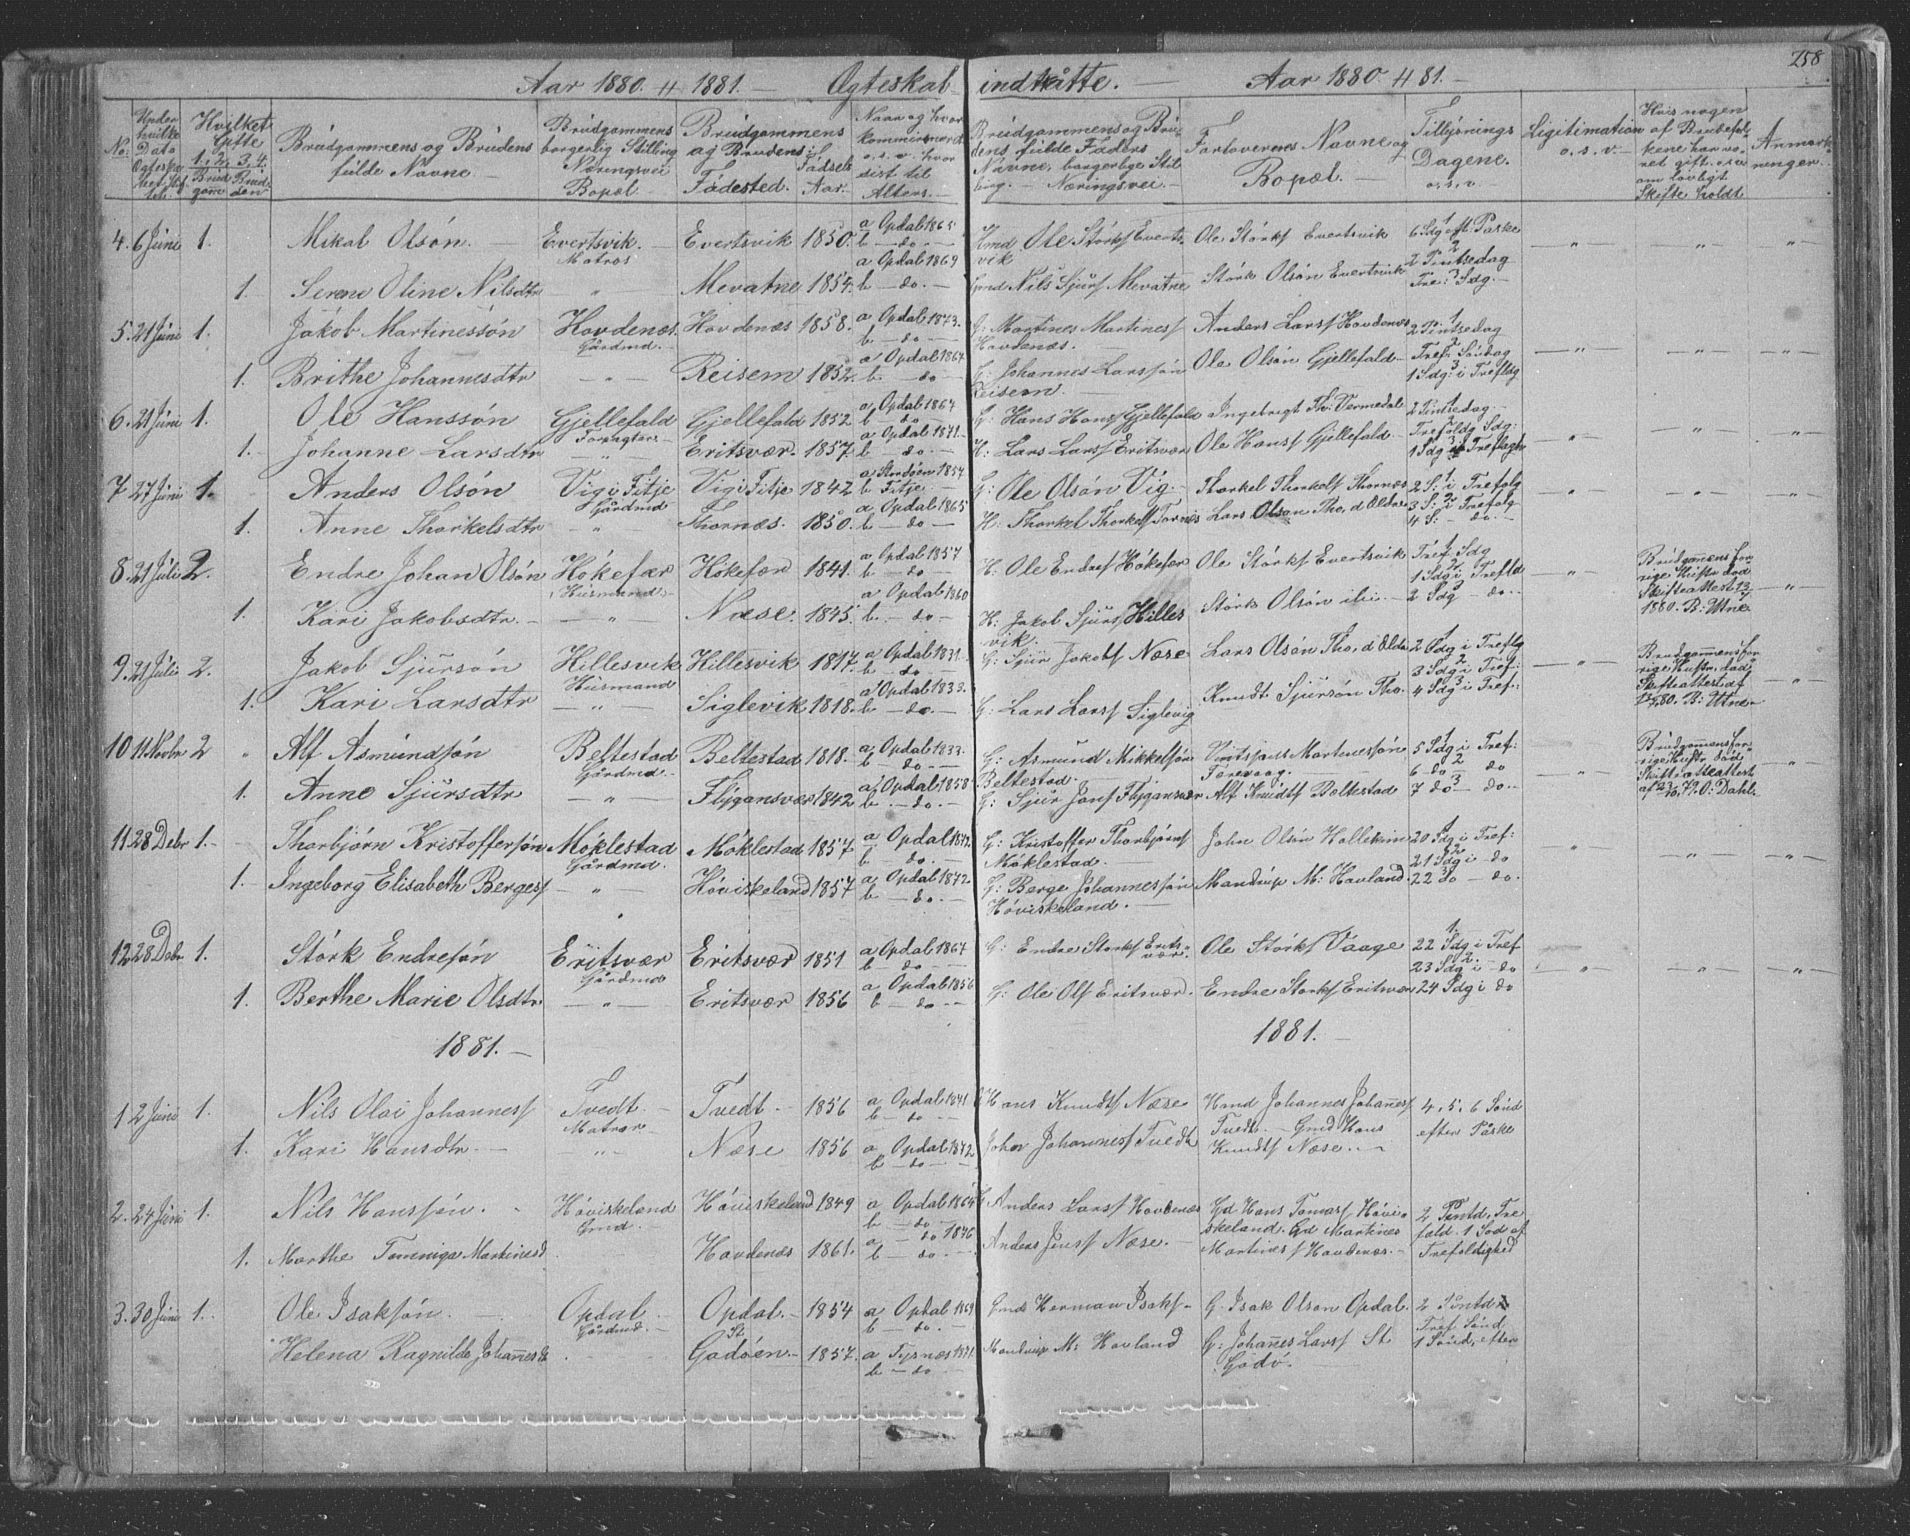 258
Aar 1880 " 1881. — Ægteskab indtrådte. — Aar 1880 " 81. —
No: Under hvilke Dato Ægteska- bet
Hvilket Gifte 1. 2. 3. 4. Brud- gom Bru- den
Brudgommens og Brudens fulde Navne. —
Brudgommens borgerlig Stilling Næringsvei Bopæl.
Brudgommens og Brudens Fødested.
Fødsels Aar.
Naar og hvor o. s. v. hvor sidst til Alters. —
Brudgommens og Bru- dens fulde Faders Navne, borgerlige Stil- ling. — Næringsvei. —
Forloverens Navne og Bopæl. —
Tillysnings Dagene. o. s. v. —
Legitimation o. s. v. —
Hvis nogen af Brudefol- kene har væ- ret gift. o. s. v. om lovligt Skifte holdt
Anmærk- ninger. —
4. 6 Juni 1. Mikal Olsón. — Evertsvik. — Matros Evertsvik 1850. a Opdal 1865 b — do. — Hmd Ole Störks Everts- vik Ole Störks Evertsvik 6 Sdg eft Paske
1. Serene Oline Nilsdtr — " — Mevatne 1854. a Opdal 1869 b — do. — Gmd Nils Sjurs Mevatne Störk Olsón Evertsvik 2 Pintsedag Tref: Sdg. —
5. 21 Juni 1. Jakob Martinessón Hovdenæs. Gårdmd. — Hovdenæs 1858. a Opdal 1873. b — do — G: Martines Martines Hovdenæs. — Anders Lars Hovdenæs 2 Pintsedag
1. Brithe Johannesdtr — " — Reisem 1852. a Opdal 1867 b — do — G: Johannes Larssón Reisem. Ole Olsón Gjellefald — Tref Sóndag 1 Sdg: i Trefldg
6. 21 Juni 1. Ole Hanssón Gjellefald Forpagter. — Gjellefald 1852. a Opdal 1867 b — do — G: Hans Hans Gjellefald Ingebrigt Th: Vermedal 2 Pintsedag —
1. Johanne Larsdtr — " — Eritsvær. 1857. a Opdal 1871. b — do — H: Lars Lars Eritsvær Ole Hans Gjellefald — Trefoldg Sdg:
7 27 Juni 1. Anders Olsón Vig i Fitje Gårdmd Vig i Fitje 1842 b Fitje. — G: Ole Olsón Vig. — Thorkel Thorkels Thornæs 2 S: i Trefolg
1. Anne Thorkelsdtr " Thornæs. 1850. a Opdal 1865 b — do — H: Thorkel Thorkels 3 S: i Trefolg 4 S: — do. —
8. 21 Juli 2. Endre Johan Olsón Hókefær Husmand. — Hókefær 1841. a Opdal 1857 b — do — H: Ole Endres Hókefær Ole Störks Evertsvik Tref Sdg 1 Sdg i Trefld Brudgommens for- rige Hustr død Skifteattest 1880. B: Utne
1. Kari Jakobsdtr. — — " — Næse. 1845. a Opdal 1860 b — do — H: Jakob Sjurs Hilles vik. — Störk Olsón 2 Sdg — do. —
9. 21 Juli 2. Jakob Sjursón Hillesvik Husmand Hillesvik 1817. a Opdal b — do G: Sjur Jakobs Næse 2 Sdg i Trefldg 3 Sdg i Tref: Brudgommensfor- rige Hustr. død Skifteattest af B: Utne
1. Kari Larsdtr — " — Siglevik 1818. a Opdal 1833. b — do. — G: Lars Lars Siglevig Knudt Sjursón Tho. 4 Sdg i Tref:
10 11 Novbr 2 " Alf Asmundsón Beltestad Gårdmd. — Beltestad 1818. a Opdal 1833. b — do. — G: Asmund Mikkelsón Beltestad. — Martenessón Færevaag. — 5 Sdg i Tref: 6 do — do Brudgommensfor- rige Hustr død Skifteatteattest af O: Dahl.
1. Anne Sjursdtr — " — Flygansvær 1842 a Opdal 1858 b. — do. — G: Sjur Jons Flygansvær Alf Knudts Bæltestad 7 do — do. —
11. 28 Debr 1. — Thorbjørn Kristoffersón Móklestad Gårdmd. Móklestad 1857 a Opdal 1872. b — do. — G: Kristoffer Thorbjørns Móklestad. — John Olsón Hollekim 20 Sdg i Tref: 21 Sdg i — do
1. Ingeborg Elisabeth Berges — " — Hóviskeland 1857 a Opdal 1872 b — do. — G: Berge Johannessón Hóviskeland. — Mandrup M: Hovland. 22 do — do.
12 28 Debr 1. Störk Endresón Eritsvær Gårdmd Eritsvær 1851 a Opdal 1867 b — do — G: Endre Störks Erits- vær. Ole Störks Vaage 22 Sdg i Tref 23 Sdg i — do
1. Berthe Marie Olsdtr. — " — Eritsvær 1856 a Opdal b — do. — G: Ole Ols Eritsvær. Endre Störks Eritsvær 24 Sdg i do
1881. — 1881. —
1 2 Juni 1. Nils Olai Johannes Tvedt. — Matros Tvedt. — 1856 a Opdal 1871 b — do Hans Knudts Næse Hmd Johannes Johannes Tvedt. — Gmd Hans Knudts Næse. — 4. 5. 6 Sónd efter Påske
1. Kari Hansdtr. — — " — Næse 1856 a Opdal 1872 b — do — John Johannes Tvedt
2. 24 Juni 1. Nils Hanssón. Hóviskeland Gmd. — Hóviskeland 1849 a Opdal 1864 b — do — Anders Lars Hovdenæs Gd Hans Tomas Hóvi- skeland. Gd Martines Martines Hovdenæs. — 2 Pintd. Tre fold. 1 Snd af Trefoldighed
1. Marthe Martinesd Hovdenæs 1861. a — do 1876 b — do. — Anders Jens Næse. —
3. 30 Juni 1. Ole Isaksón. Opdal. Gårdmd. — Opdal. — 1854 a Opdal 1869 b — do. — Gmd Herman Isaks. — G. Isak Olson Opdal. 2 Pintd Tref. Sónd 1 Sónd, efter
Helena Ragnilde Johannesd St. Godóen. — 1857. a Tysnæs 1871 b — do Mandrup M: Hovland G: Johannes Lars St. Godó. —